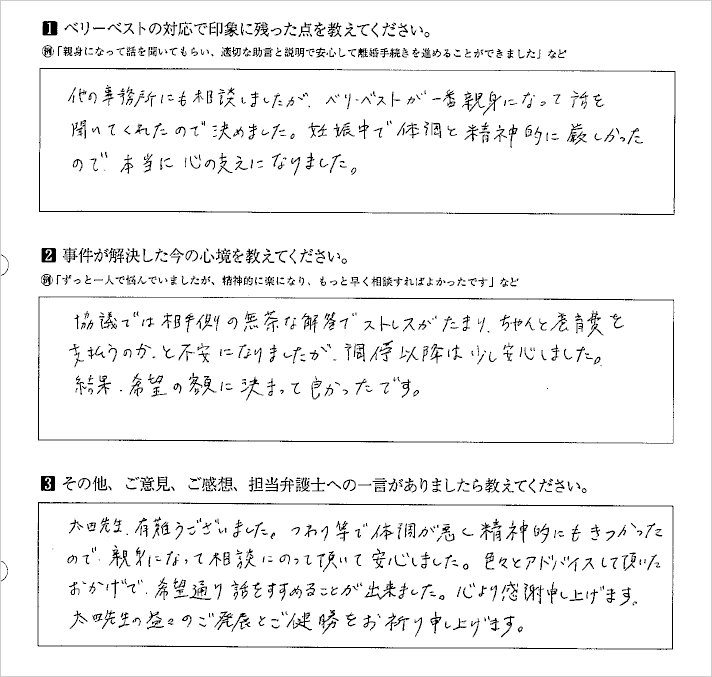 1 ベリーベストの対応で印象に残った点を教えてください。
例「親身になって話を聞いてもらい、適切な助言と説明で安心して離婚手続きを進めることができました」など
他の事務所にも相談しましたが、ベリーベストが一番親身になって話を
聞いてくれたので決めました。妊娠中で体調と精神的に厳しかった
ので、本当に心の支えになりました。
2 事件が解決した今の心境を教えてください。
例「ずっと一人で悩んでいましたが、精神的に楽になり、もっと早く相談すればよかったです」など
協議では相手側の無茶な解答でストレスがたまり、ちゃんと養育費を
支払うのか、と不安になりましたが、調停以降は少し安心しました。
結果、希望の額に決まって良かったです。
3 その他、ご意見、ご感想、担当弁護士への一言がありましたら教えてください。
太田先生、有難うございました。つわり等で体調が悪く精神的にもきつかった
ので、親身になって相談にのって頂いて安心しました。色々とアドバイスして頂いた
おかげで、希望通り話をすすめることが出来ました。心より感謝申し上げます。
太田先生の益々のご発展とご健勝をお祈り申し上げます。